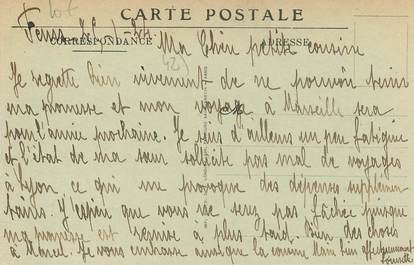 CARTE POSTALE
CORRESPONDANCE
ADRESSE
Ma Chère petite cousine
Je regrette bien vivement de ne pouvoir tenir
ma promesse et mon voyage à Marseille sera
pour l'année prochaine. Je suis d'ailleurs un peu fatiguée
et l'état de ma sœur sollicite pas mal de voyages
à Lyon ce qui me provoque des dépenses supplémen
taires. J'espère que vous ne serez pas fâchée puisque
ma promesse est remise à plus tard. Bien des choses
à Marcel. Je vous embrasse ainsi que la cousine Marie bien affectueusement